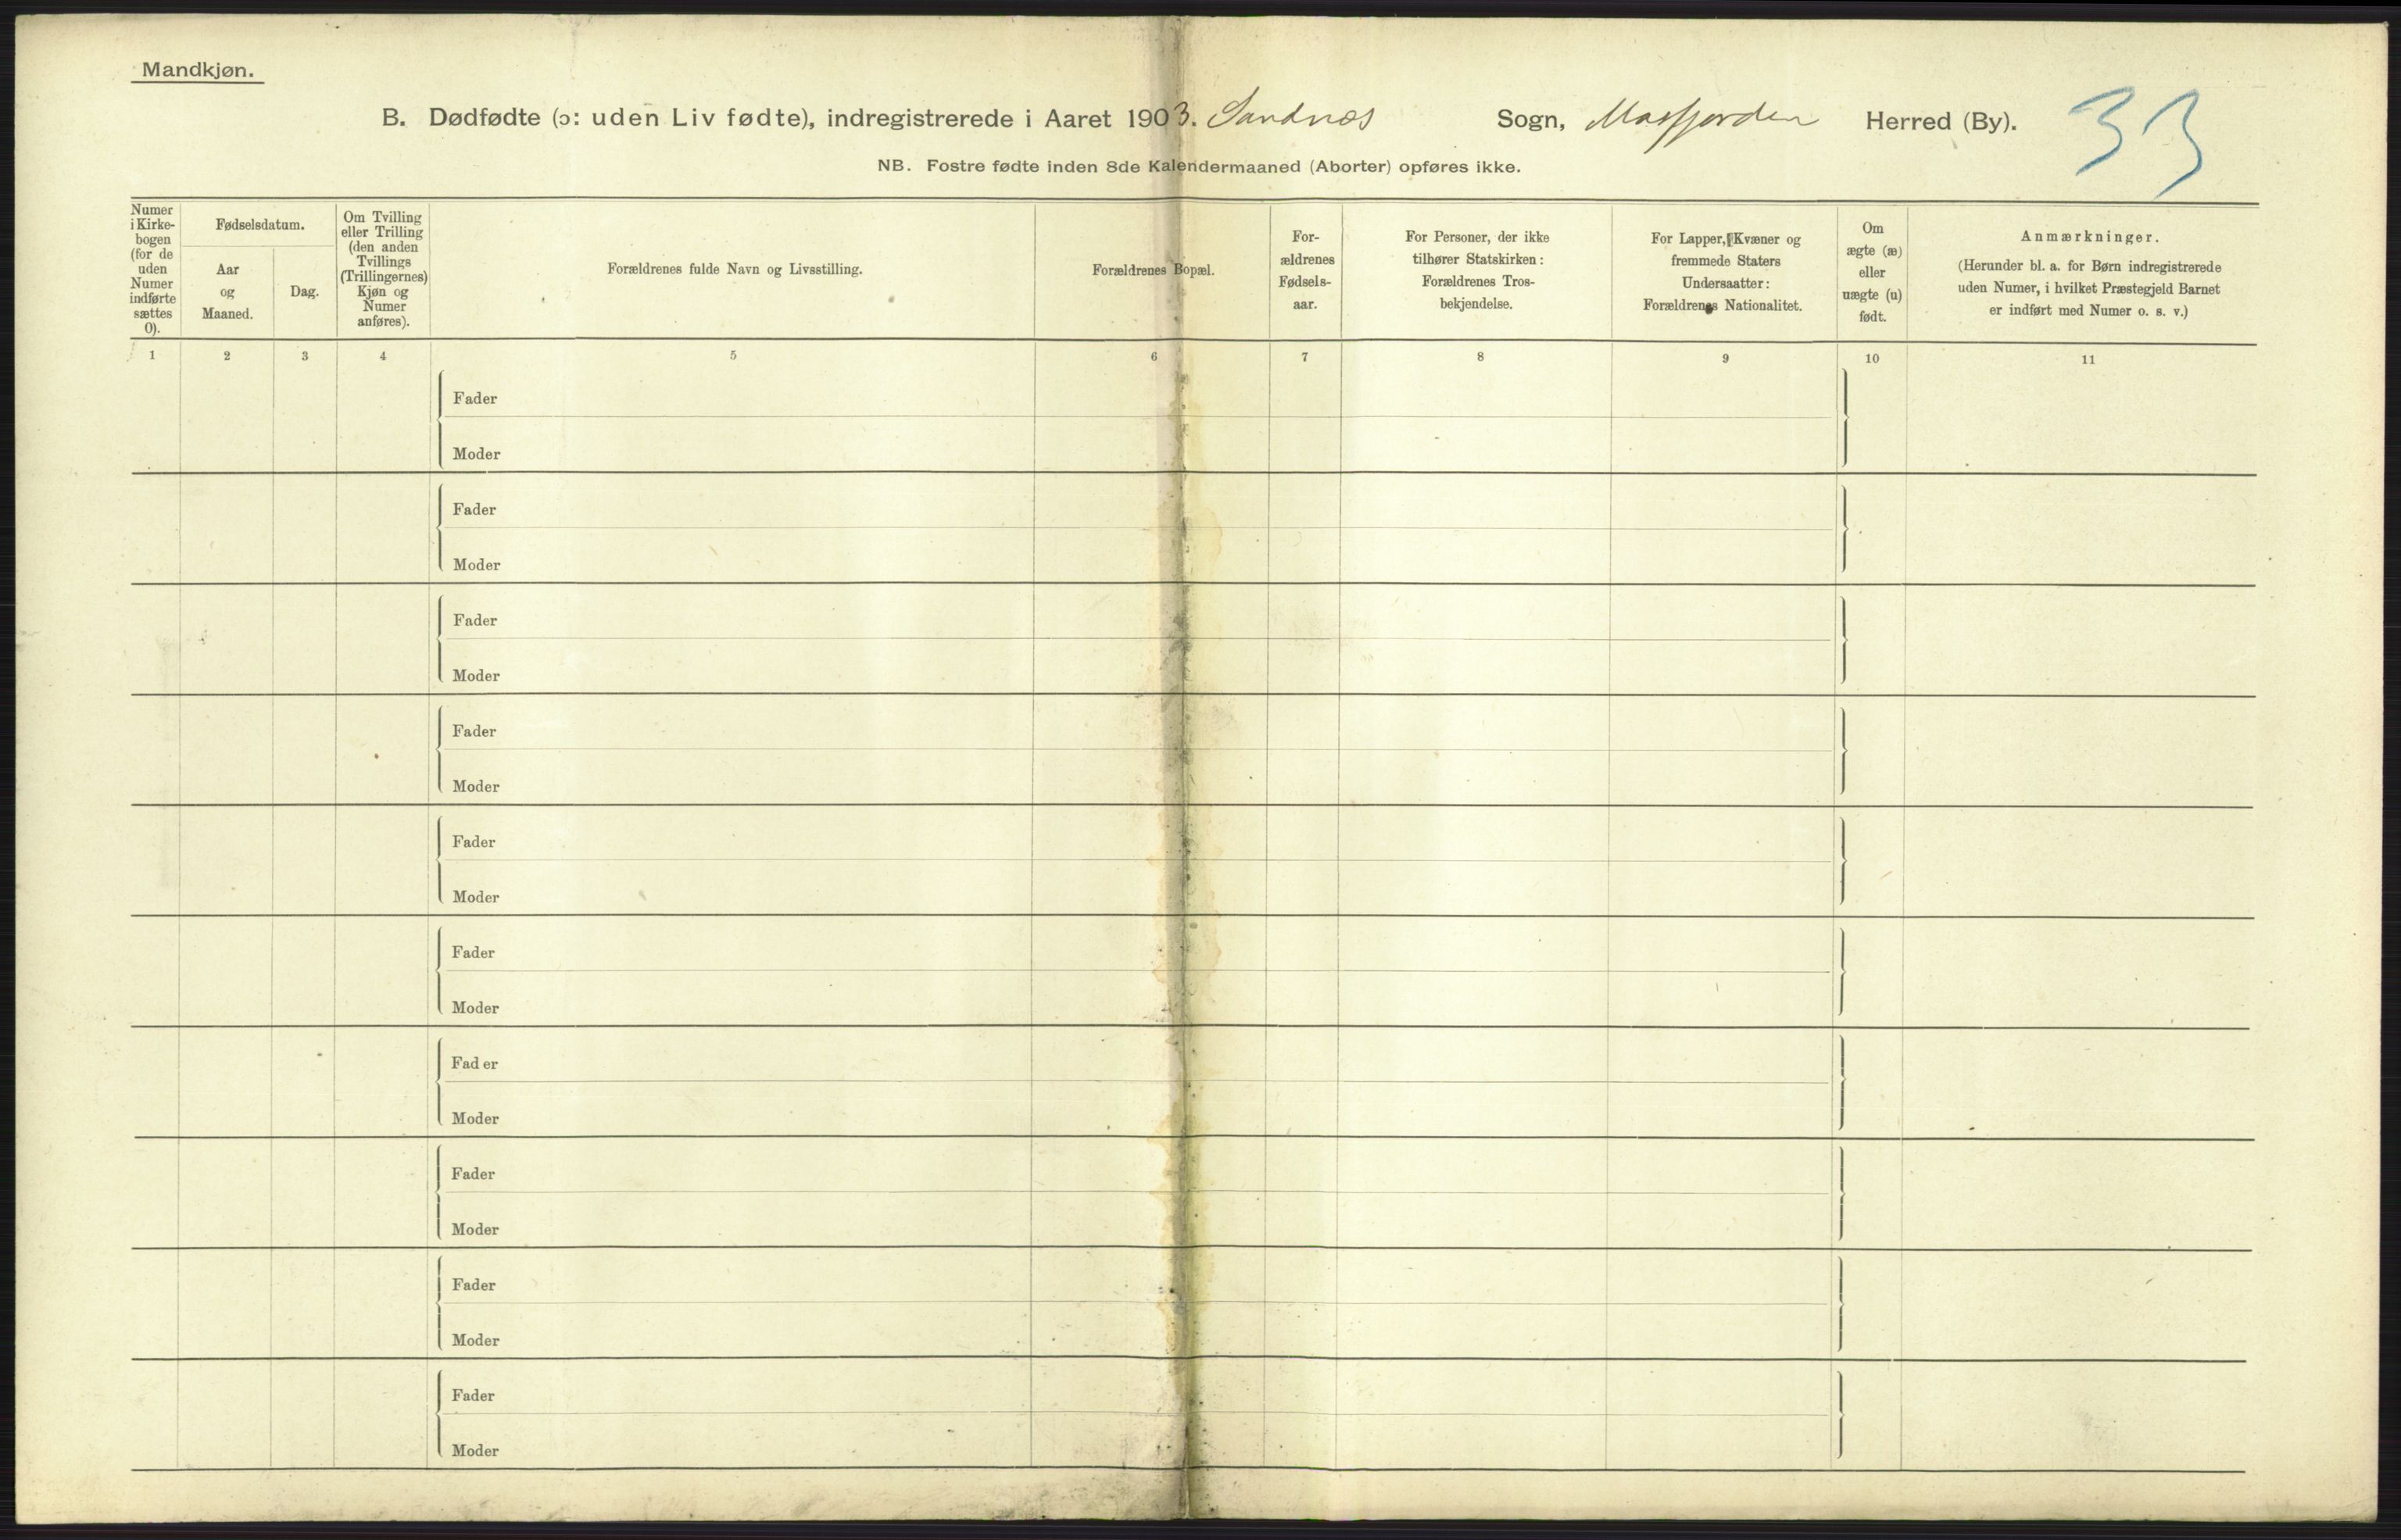 Mandkjøn.
B. Dødfødte (ɔ: uden Liv fødte), indregistrerede i Aaret 1903. Sandnæs Sogn, Masfjorden Herred (By).
33
NB. Fostre fødte inden 8de Kalendermaaned (Aborter) opføres ikke.
Numer
i Kirke-
bogen
(for de
uden
Numer
indførte
sættes
0).
Fødselsdatum.
Aar
og
Maaned.
Dag.
Om Tvilling
eller Trilling
(den anden
Tvillings
(Trillingernes)
Kjøn og
Numer
anføres).
Forældrenes fulde Navn og Livsstilling.
Forældrenes Bopæl.
For-
ældrenes
Fødsels-
aar.
For Personer, der ikke
tilhører Statskirken:
Forældrenes Tros-
bekjendelse.
For Lapper, Kvæner og
fremmede Staters
Undersaatter:
Forældrenes Nationalitet.
Om
ægte (æ)
eller
uægte (u)
født.
Anmærkninger.
(Herunder bl. a. for Børn indregistrerede
uden Numer, i hvilket Præstegjeld Barnet
er indført med Numer o. s. v.)
1 2 3 4 5 6 7 8 9 10 11
Fader
Moder
Fader
Moder
Fader
Moder
Fader
Moder
Fader
Moder
Fader
Moder
Fader
Moder
Fader
Moder
Fader
Moder
Fader
Moder